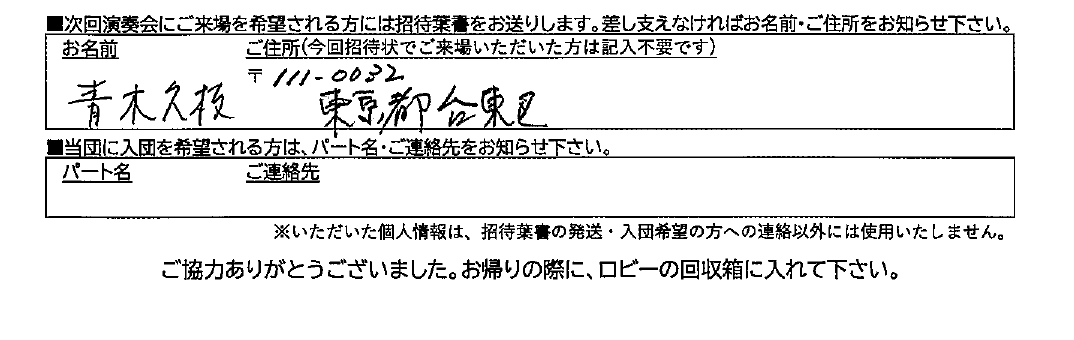 ■次回演奏会にご来場を希望される方には招待葉書をお送りします。差し支えなければお名前・ご住所をお知らせ下さい。
お名前 ご住所(今回招待状でご来場いただいた方は記入不要です)
〒111-0032
青木久枝 東京都台東区
■当団に入団を希望される方は、パート名・ご連絡先をお知らせ下さい。
パート名 ご連絡先
※いただいた個人情報は、招待葉書の発送・入団希望の方への連絡以外には使用いたしません。
ご協力ありがとうございました。お帰りの際に、ロビーの回収箱に入れて下さい。